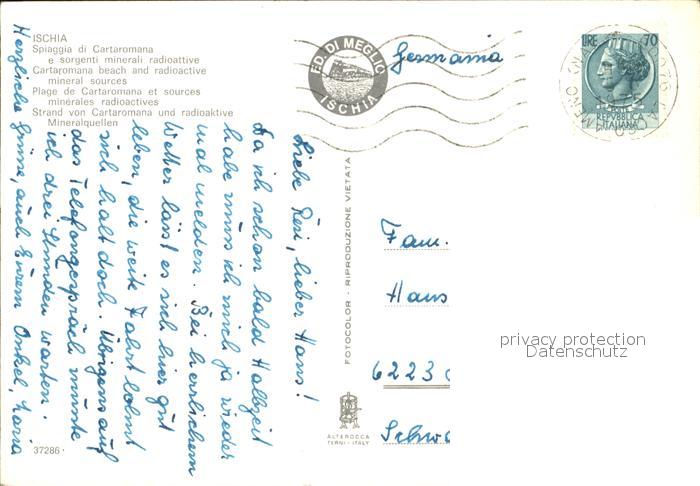 ISCHIA
Spiaggia di Cartaromana
e sorgenti minerali radioattive
Cartaromana beach and radioactive
mineral sources
Plage de Cartaromana et sources
minérales radioactives
Strand von Cartaromana und radioaktive
Mineralquellen
ED. DI MEGLIO
ISCHIA
Germania
LIRE 70
POSTE
REPVBBLICA
ITALIANA
Liebe Resi, lieber Hans!
Da ich schon bald Halbzeit
habe muss ich mich ja wieder
mal melden. Bei herrlichem
Wetter lässt es sich hier gut
leben, die weite Fahrt lohnt
sich halt doch. Übrigens auf
das Telefongespräch musste
ich drei Stunden warten.
Herzliche Grüsse, auch Eurem Onkel, Maria
FOTOCOLOR - RIPRODUZIONE VIETATA
Fam.
Hans
6223
Schw
privacy protection
Datenschutz
ALTEROCCA
TERNI - ITALY
37286